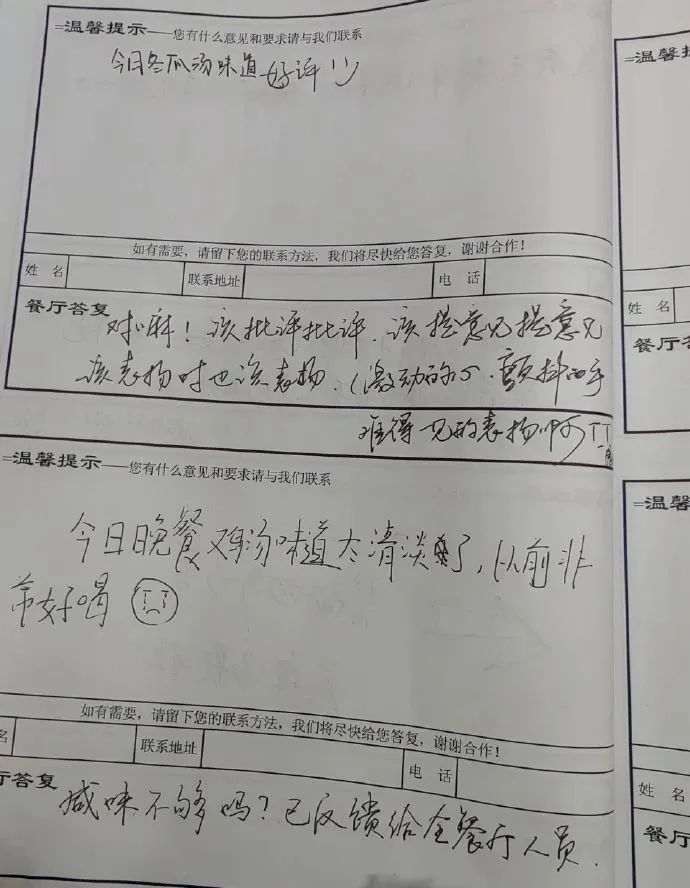 =温馨提示——您有什么意见和要求请与我们联系
今日冬瓜汤味道好评!!
如有需要，请留下您的联系方法，我们将尽快给您答复，谢谢合作！
姓 名 联系地址 电 话
餐厅答复
对嘛！该批评批评.该提意见提意见
该表扬时也该表扬.(激动的心.颤抖的手
难得一见的表扬啊TT
=温馨提示——您有什么意见和要求请与我们联系
今日晚餐鸡汤味道太清淡了,以前非
常好喝
如有需要，请留下您的联系方法，我们将尽快给您答复，谢谢合作！
名 联系地址 电 话
厅答复
咸味不够吗?已反馈给全餐厅人员.
=温馨提
姓 名
餐厅答
=温馨
姓 名
餐厅